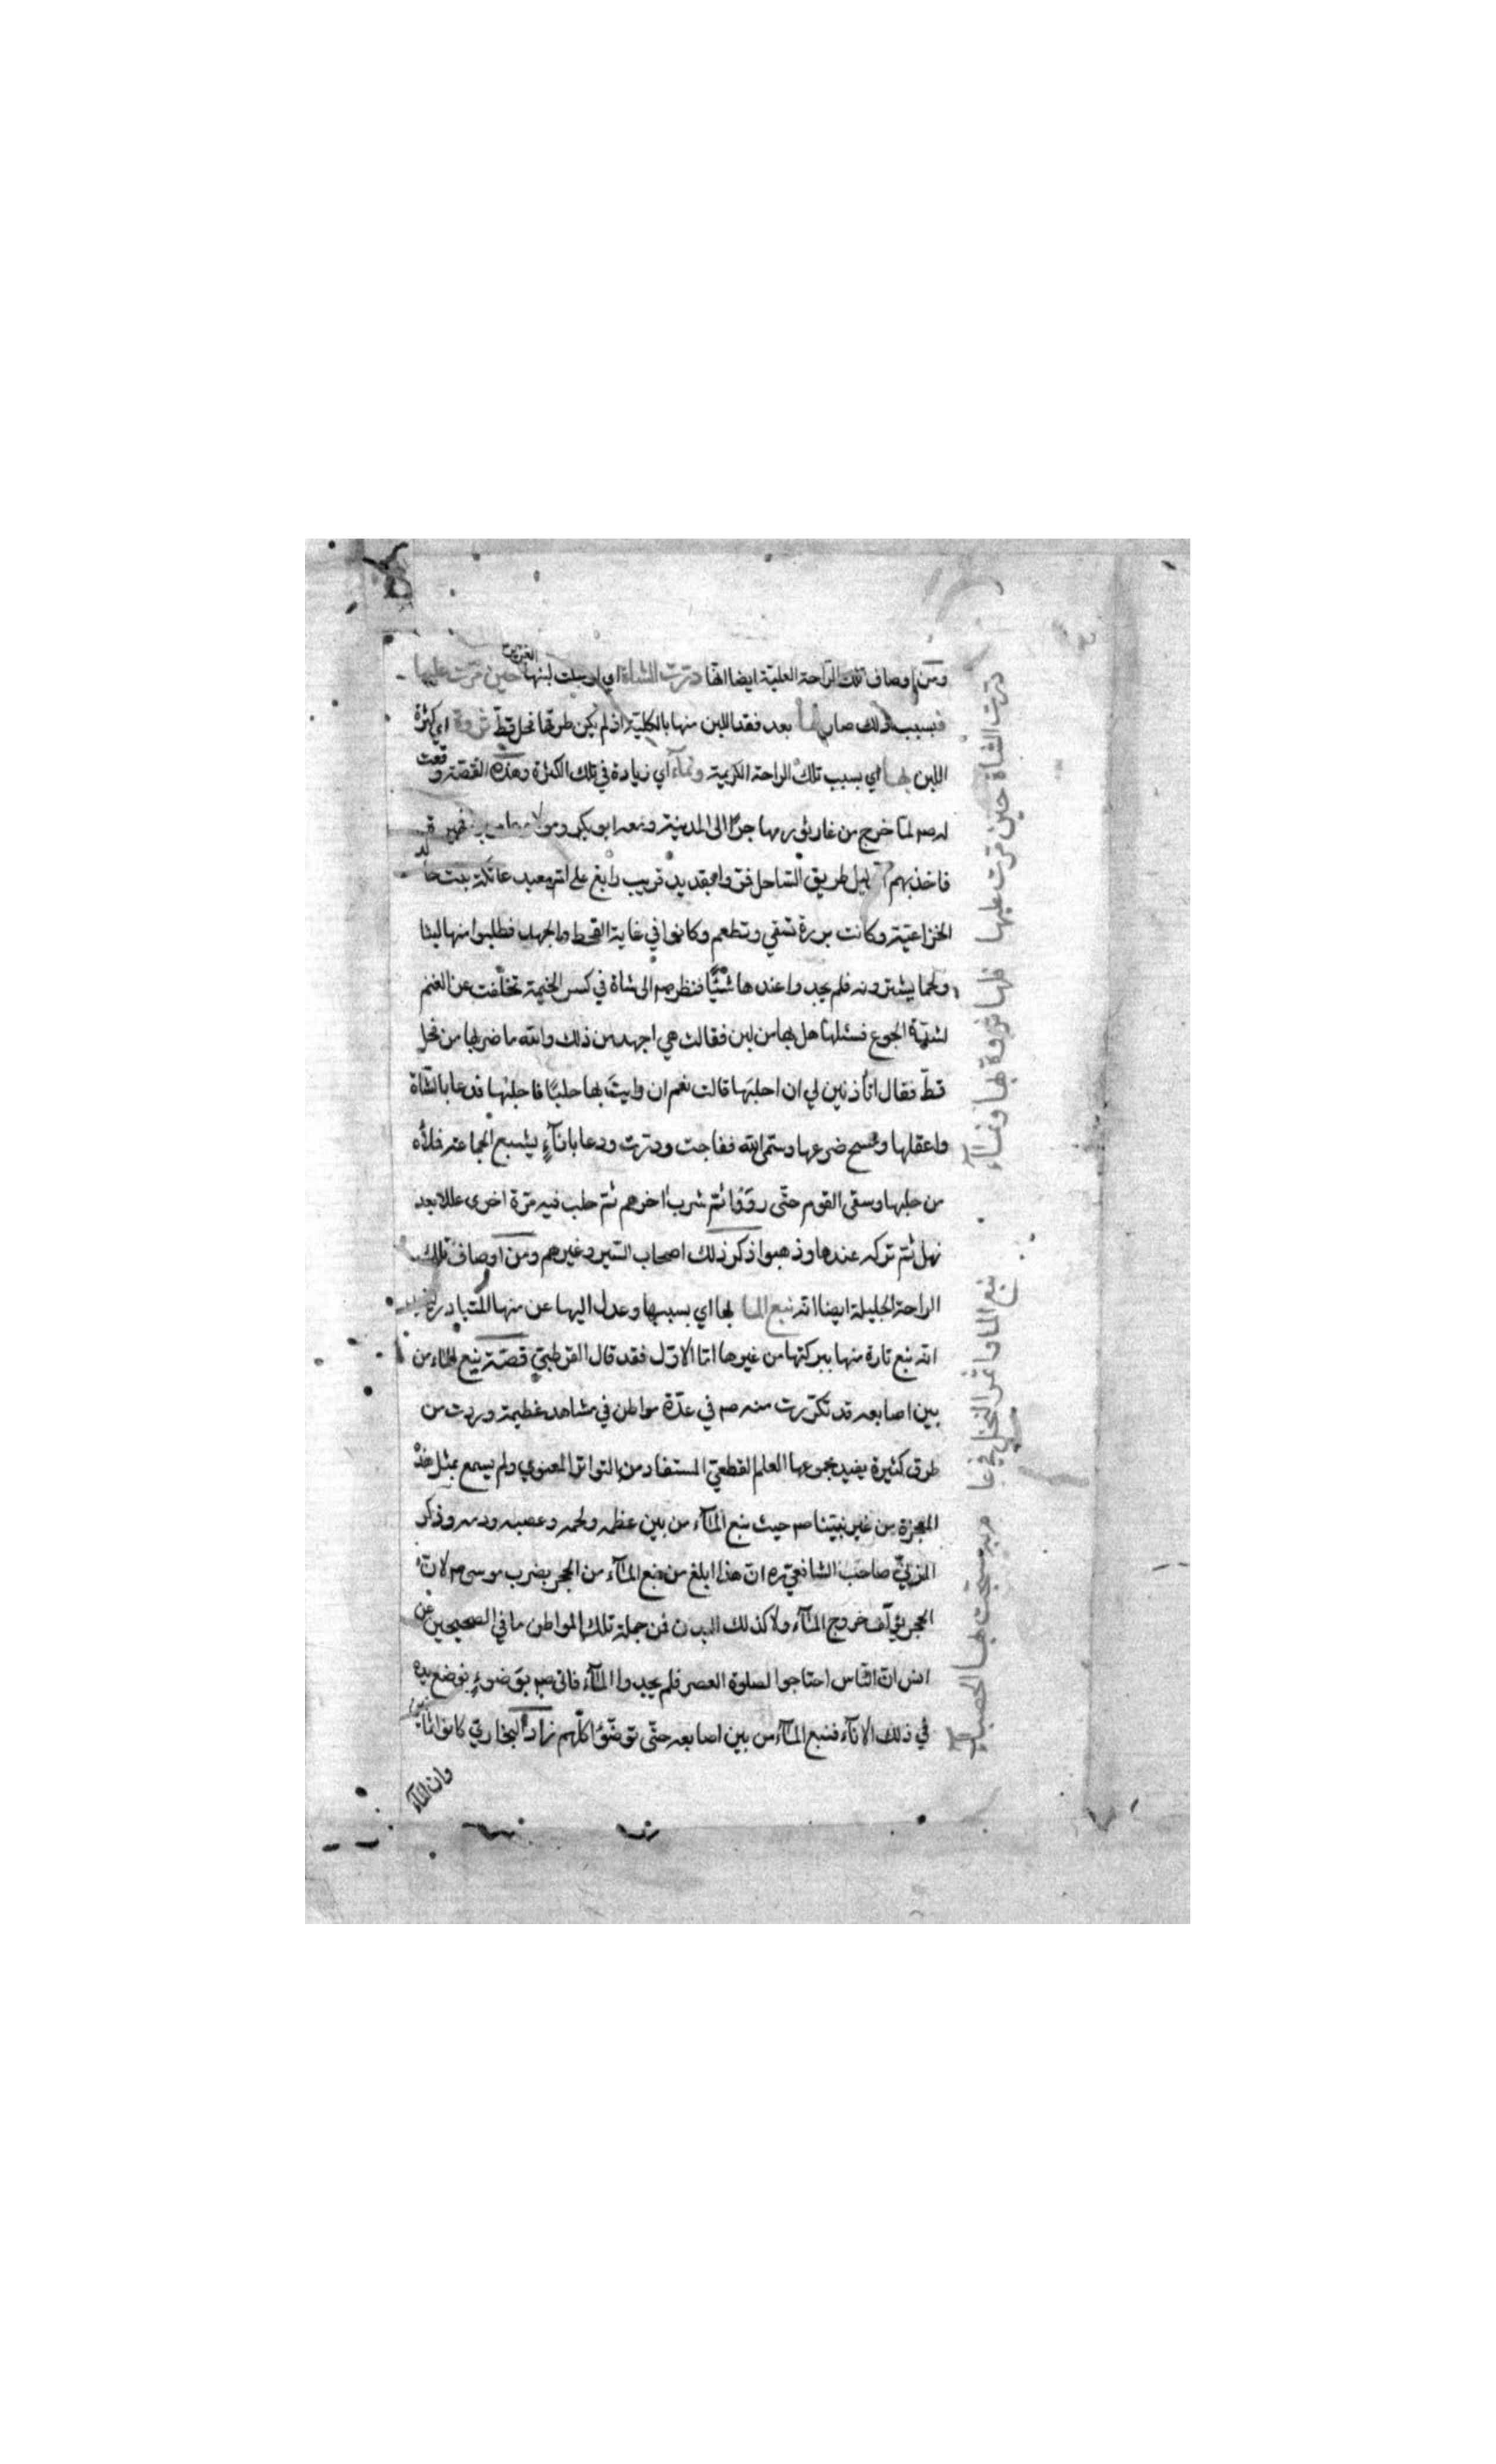 ومن اوصاف تلك الراحة العلية ايضا انها درّت الشاة اي ارسلت لبنها الغزير حين مرّت عليها
فبسبب ذلك صار لها بعد فقد اللبن منها بالكلية اذ لم يكن طرقها فحل قطّ ثروة اي كثرة
اللبن بها اي بسبب تلك الراحة الكريمة ونمآء اي زيادة في تلك الكثرة وهذه القصّة وقعت
له صم لمّا خرج من غار ثور مهاجرًا الى المدينة ومعه ابو بكر ومولاه عامر بن فهيرة
فاخذ بهم طريق السّاحل فمرّوا بقديد قريب رابغ على امّ معبد عاتكة بنت خالد
الخزاعيّة وكانت برزة تسقي وتطعم وكانوا في غاية القحط والجهد فطلبوا منها لبنًا
ولحما يشترونه فلم يجدوا عندها شيئًا فنظر صم الى شاة في كسر الخيمة تخلّفت عن الغنم
لشدّة الجوع فسئلها هل بها من لبن فقالت هي اجهد من ذلك والله ما ضربها من فحل
قطّ فقال اتأذنين لي ان احلبَها قالت نعم ان رايتَ بها حلبًا فاحلبها فدعا بالشاة
واعقلها ومسح ضرعها وسمّى الله ففاجت ودرّت ودعا بانآءٍ يشبع الجماعة فملأه
من حلبها وسقى القوم حتّى رووا ثمّ شرب اخرهم ثمّ حلب فيه مرّة اخرى عللا بعد
نهل ثمّ تركه عندها وذهبوا ذكر ذلك اصحاب السّير وغيرهم ومن اوصاف تلك
الراحة الجليلة ايضا انّه نبع الما بها اي بسببها وعدل اليها عن منها المتبادر
انّه نبع تارة منها ببركتها من غيرها امّا الاوّل فقد قال القرطبيّ قصّة نبع الماء من
بين اصابعه قد تكرّرت منه صم في عدّة مواطن في مشاهد عظيمة وردت من
طرق كثيرة يفيد مجموعها العلم القطعيّ المستفاد من التواتر المعنوي ولم يسمع بمثل هذه
المعجزة من غير نبيّنا صم حيث نبع المآء من بين عظمه ولحمه وعصبه ودمه وذكر
المزنيّ صاحب الشافعيّ ره انّ هذا ابلغ من نبع المآء من الحجر بضرب موسى صم لانّ
الحجر يؤلف خروج المآء ولا كذلك البدن فمن جملة تلك المواطن ما في الصحيحين عن
انس انّ النّاس احتاجوا لصلوة العصر فلم يجدوا المآء فاتى صم بوَضوءٍ فوضع يده
في ذلك الانآء فنبع المآء من بين اصابعه حتّى توضّؤا كلّهم زاد البخاريّ كانوا ثمانين
وان المآء
درّت الشاة حين مرّت عليها فلها ثروة بها ونمآء
نبع الما واثمر النخل في عا
م به سبّحت بها الحصبآء